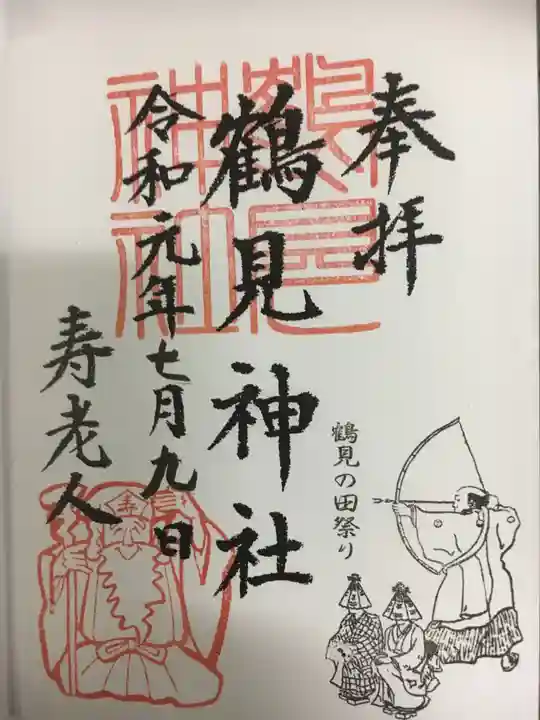 奉拝
鶴見神社
鶴見神社
令和元年七月九日
寿老人
寿
鶴見の田祭り